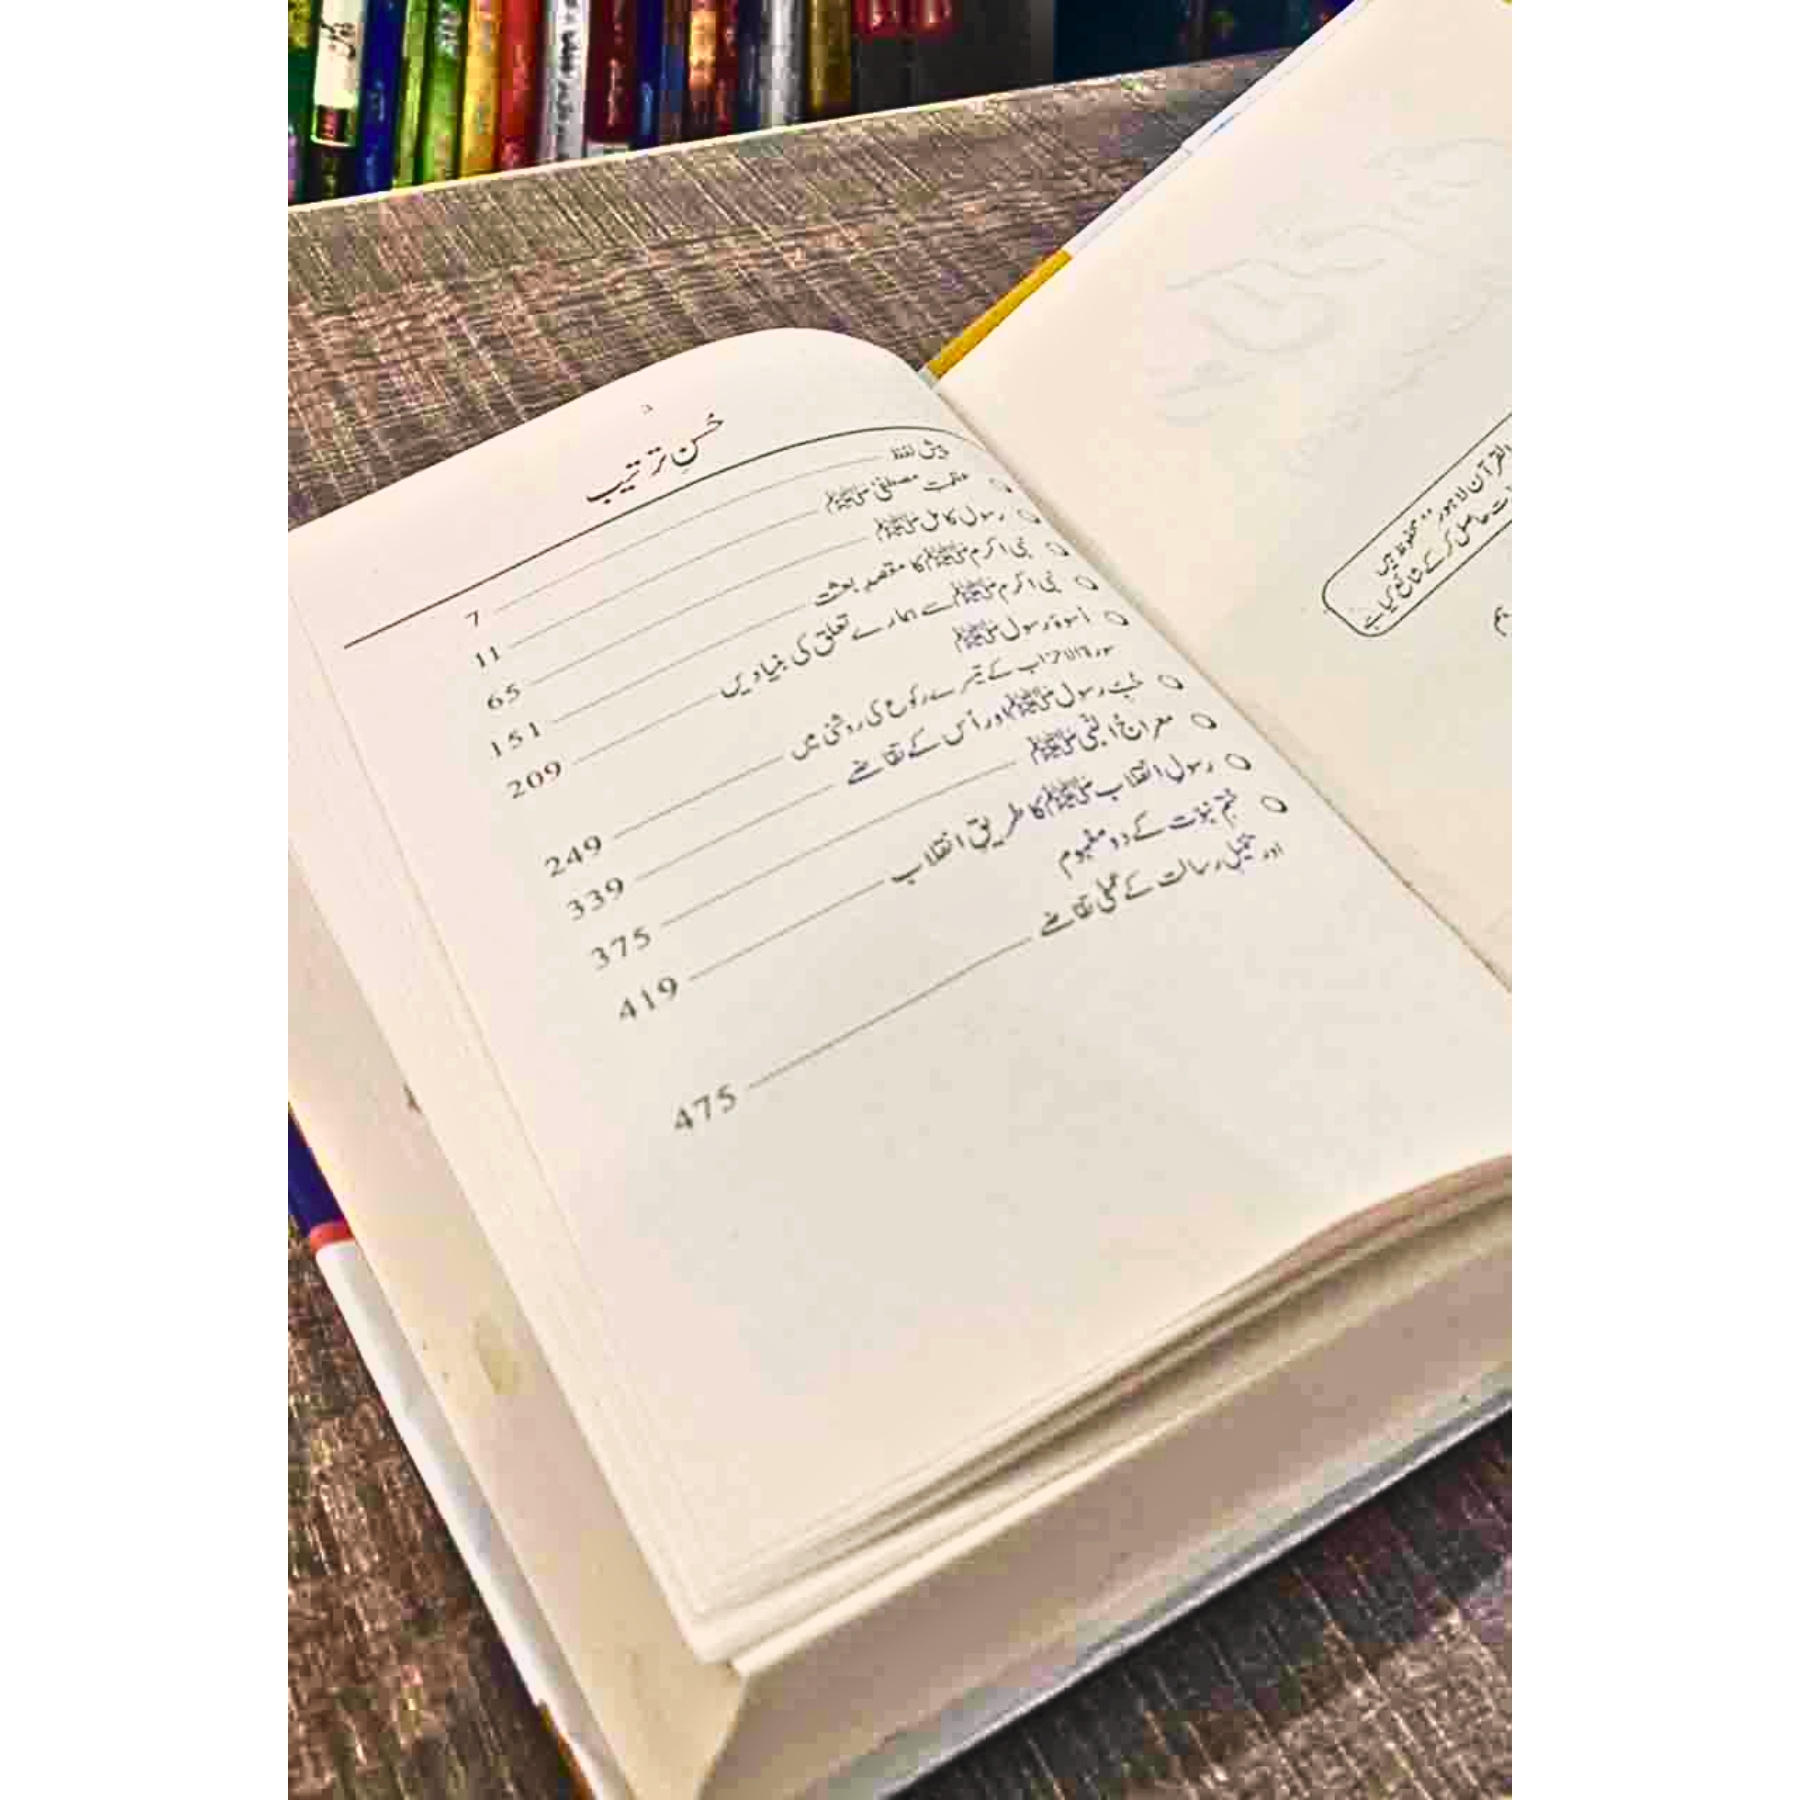 حُسنِ ترتیب
پیش لفظ 7
عظمتِ مصطفیٰ ﷺ 11
رسولِ کامل ﷺ 65
نبی اکرم ﷺ کا مقصدِ بعثت 151
نبی اکرم ﷺ سے ہمارے تعلق کی بنیادیں 209
اُسوۂ رسول ﷺ
سورۃ الاحزاب کے تیسرے رکوع کی روشنی میں 249
حُبِّ رسول ﷺ اور اُس کے تقاضے 339
معراج النبی ﷺ 375
رسولِ انقلاب ﷺ کا طریقِ انقلاب 419
ختم نبوّت کے دو مفہوم
اور تکمیلِ رسالت کے عملی تقاضے 475
القرآن لاہور" محفوظ ہیں
حاصل کر کے شائع کیا ہے